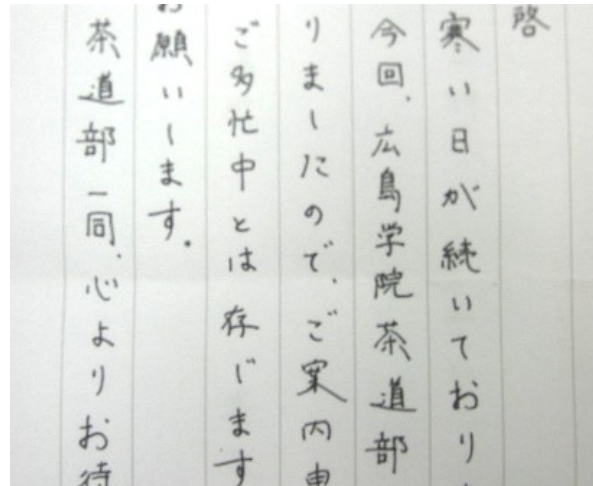 啓
寒い日が続いており
今回、広島学院茶道部
りましたので、ご案内申
ご多忙中とは存じます
お願いします。
茶道部一同、心よりお待